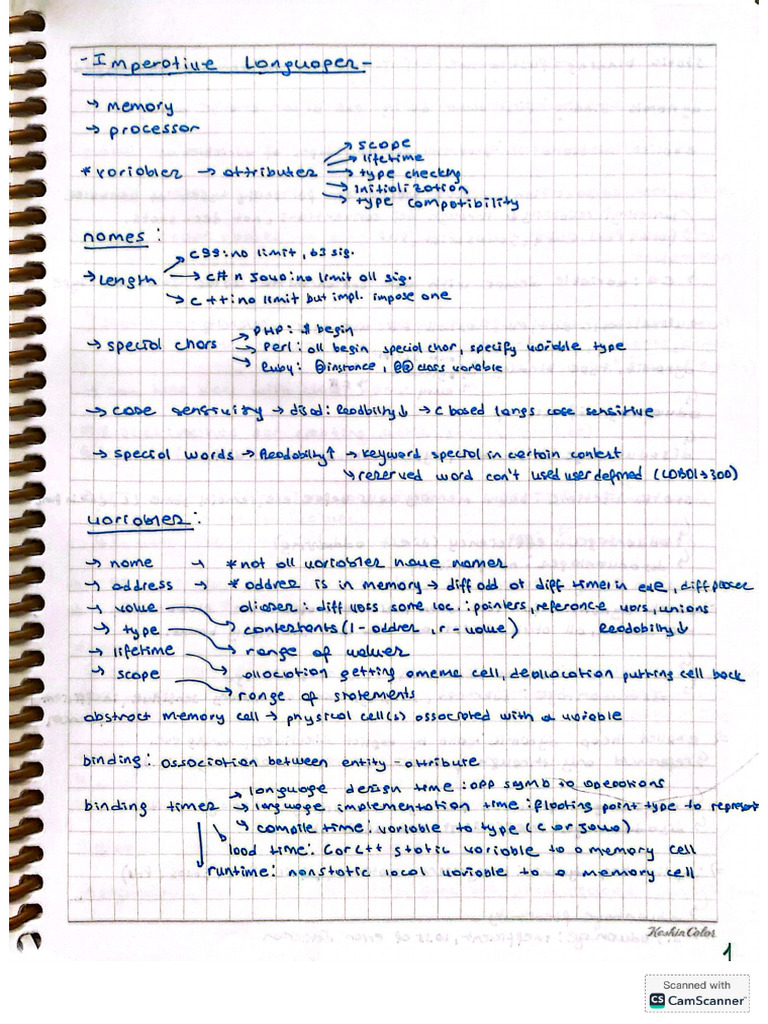 - Imperative Languages -
→ memory
→ processor
* variables → attributes → scope
→ lifetime
→ type checking
→ initialization
→ type compatibility
names :
→ Length → C99: no limit, 63 sig.
→ C# n Java: no limit all sig.
→ C++: no limit but impl. impose one
→ special chars → PHP: $ begin
→ Perl: all begin special char, specify variable type
→ Ruby: @instance, @@ class variable
→ case sensitivity → disad: Readability↓ → C based langs case sensitive
→ special words → Readability↑ → keyword special in certain context
↳ reserved word can't used user defined (COBOL→300)
variables :
→ name → * not all variables have names
→ address → * address is in memory → diff add at diff times in exe, diff places
→ value aliases: diff vars same loc.: pointers, reference vars, unions
→ type → contents (l-address, r-value) Readability↓
→ lifetime → range of values
→ scope → allocation getting a mem cell, deallocation putting cell back
→ range of statements
abstract memory cell → physical cell(s) associated with a variable
binding: association between entity-attribute
→ language design time: opp symb to operations
binding times → language implementation time: floating point type to represent
→ compile time: variable to type (C or Java)
load time: C or C++ static variable to a memory cell
runtime: nonstatic local variable to a memory cell
Keskin Color
1
Scanned with
CS CamScanner